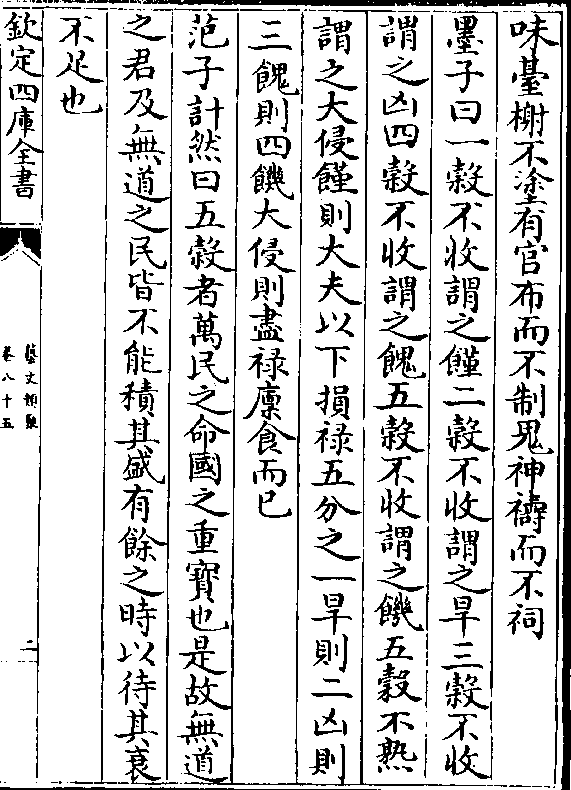 味䑓榭不塗有官布而不制鬼神禱而不祠
墨子曰一榖不收謂之饉二榖不收謂之旱三榖不收
謂之凶四榖不收謂之餽五榖不收謂之饑五榖不熟
謂之大侵饉則大夫以下損禄五分之一旱則二凶則
三餽則四饑大侵則盡禄廪食而已
范子計然曰五榖者萬民之命國之重寳也是故無道
之君及無道之民皆不能積其盛有餘之時以待其衰
不足也
欽定四庫全書
藝文類聚
卷八十五
二